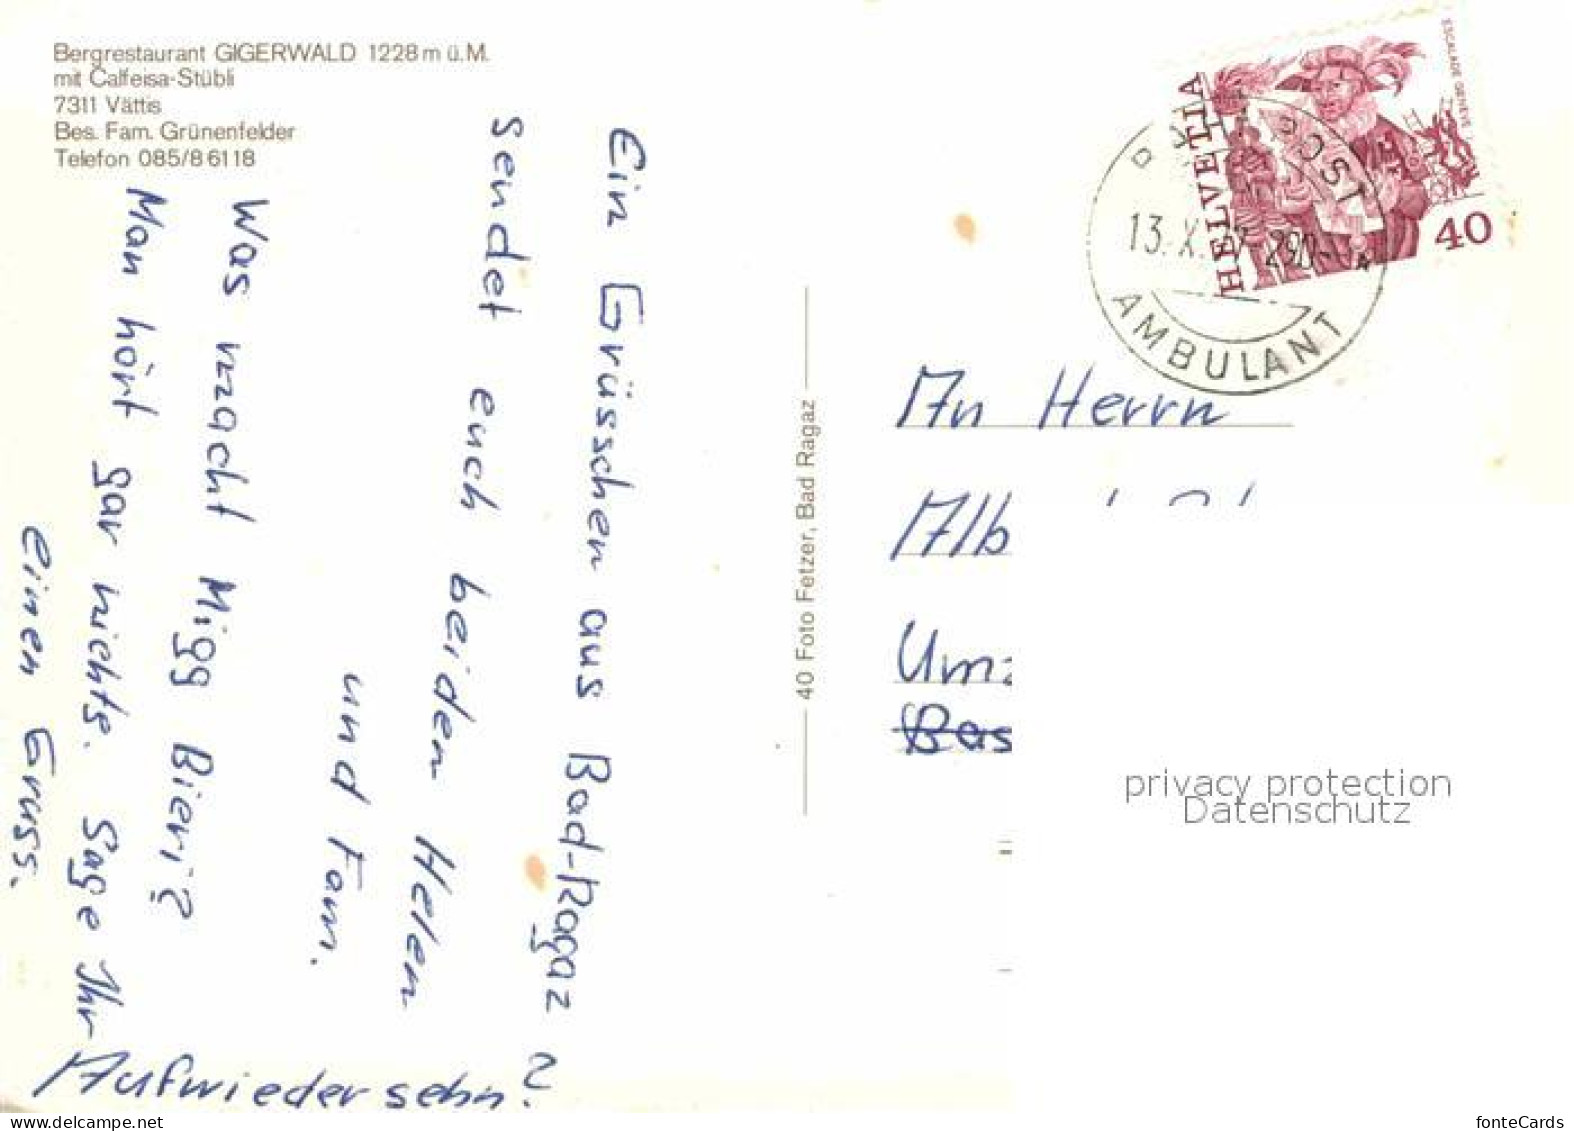 Bergrestaurant GIGERWALD 1228 m ü.M.
mit Calfeisa-Stübli
7311 Vättis
Bes. Fam. Grünenfelder
Telefon 085/8 61 18
Ein Grüsschen aus Bad-Ragaz
sendet euch beiden Helen
und Fam.
Was macht Migg Bieri?
Man hört gar nichts. Sage Ihr
einen Gruss.
Aufwiedersehn
40 Foto Fetzer, Bad Ragaz
HELVETIA
ESCALADE GENÈVE
40
POST
13.X.
AMBULANT
An Herrn
Alb
Um
Bas
privacy protection
Datenschutz
www.delcampe.net
fonteCards